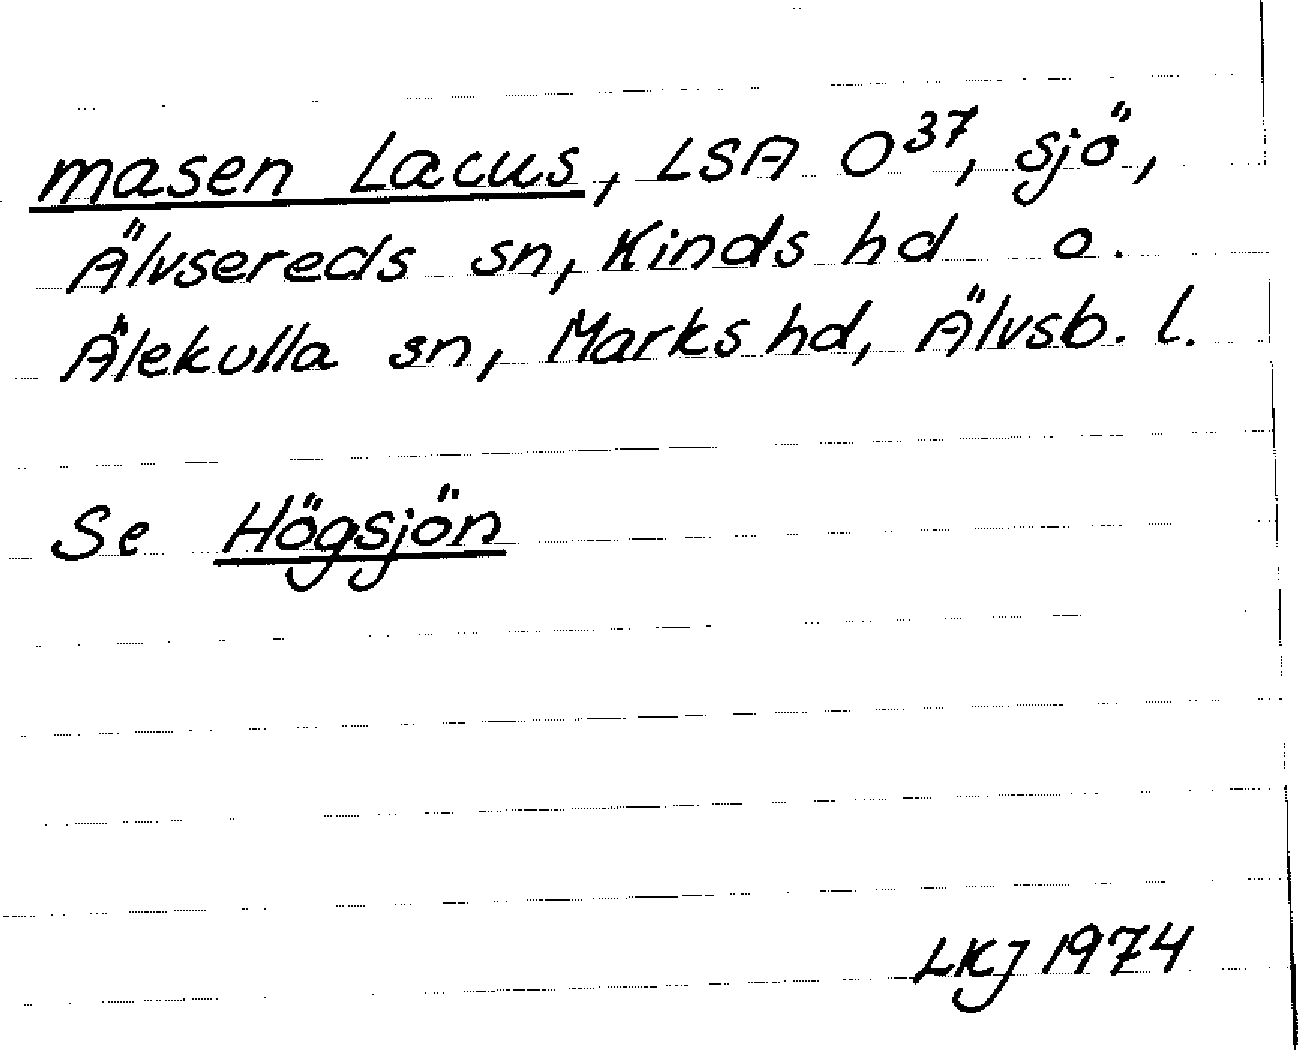 masen Lacus, LSA O³⁷, sjö,
Älvsereds sn, Kinds hd o.
Älekulla sn, Marks hd, Älvsb. l.
Se Högsjön
LKJ 1974